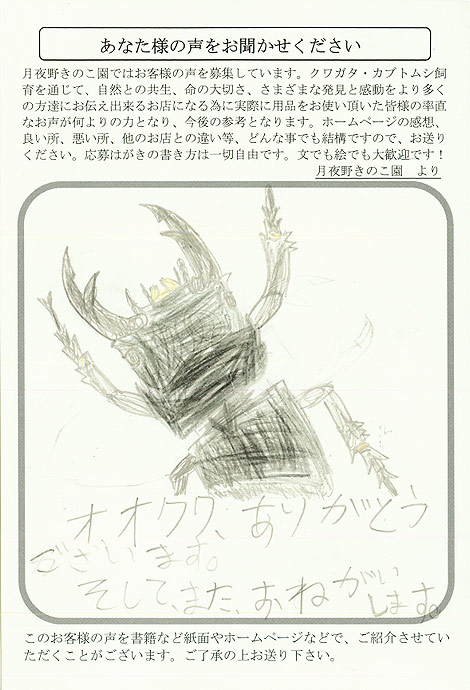 あなた様の声をお聞かせください
月夜野きのこ園ではお客様の声を募集しています。クワガタ・カブトムシ飼
育を通じて、自然との共生、命の大切さ、さまざまな発見と感動をより多く
の方達にお伝え出来るお店になる為に実際に用品をお使い頂いた皆様の率直
なお声が何よりの力となり、今後の参考となります。ホームページの感想、
良い所、悪い所、他のお店との違い等、どんな事でも結構ですので、お送り
ください。応募はがきの書き方は一切自由です。文でも絵でも大歓迎です！
月夜野きのこ園　より
オオクワ、ありがとう
ございます。
そして、また、おねがい
します。
このお客様の声を書籍など紙面やホームページなどで、ご紹介させてい
ただくことがございます。ご了承の上お送り下さい。